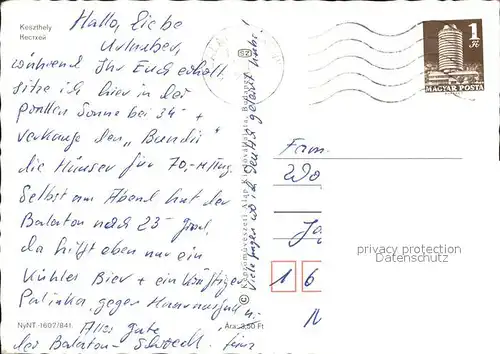 Keszthely
Кестхей
Hallo, Liebe
Urlauber,
während Ihr Euch erholt
sitze ich hier in der
prallen Sonne bei 34° +
verkaufe den „Bundis"
die Häuser für 70,-M/Tag.
Selbst am Abend hat der
Balaton noch 23 Grad,
da hilft eben nur ein
Kühles Bier + ein kräftiger
Palinka gegen Haarausfall
Alles gute
der Balaton-
NyNT-1607/841.
Ára: 3,50 Ft
SZ
© Képzőművészeti Alap Kiadóvállalata, Budapest
Viele fragen wo ich Deutsch gelernt habe!
1 Ft
MAGYAR POSTA
Fam
Wo
Ja
1 6
N
privacy protection
Datenschutz